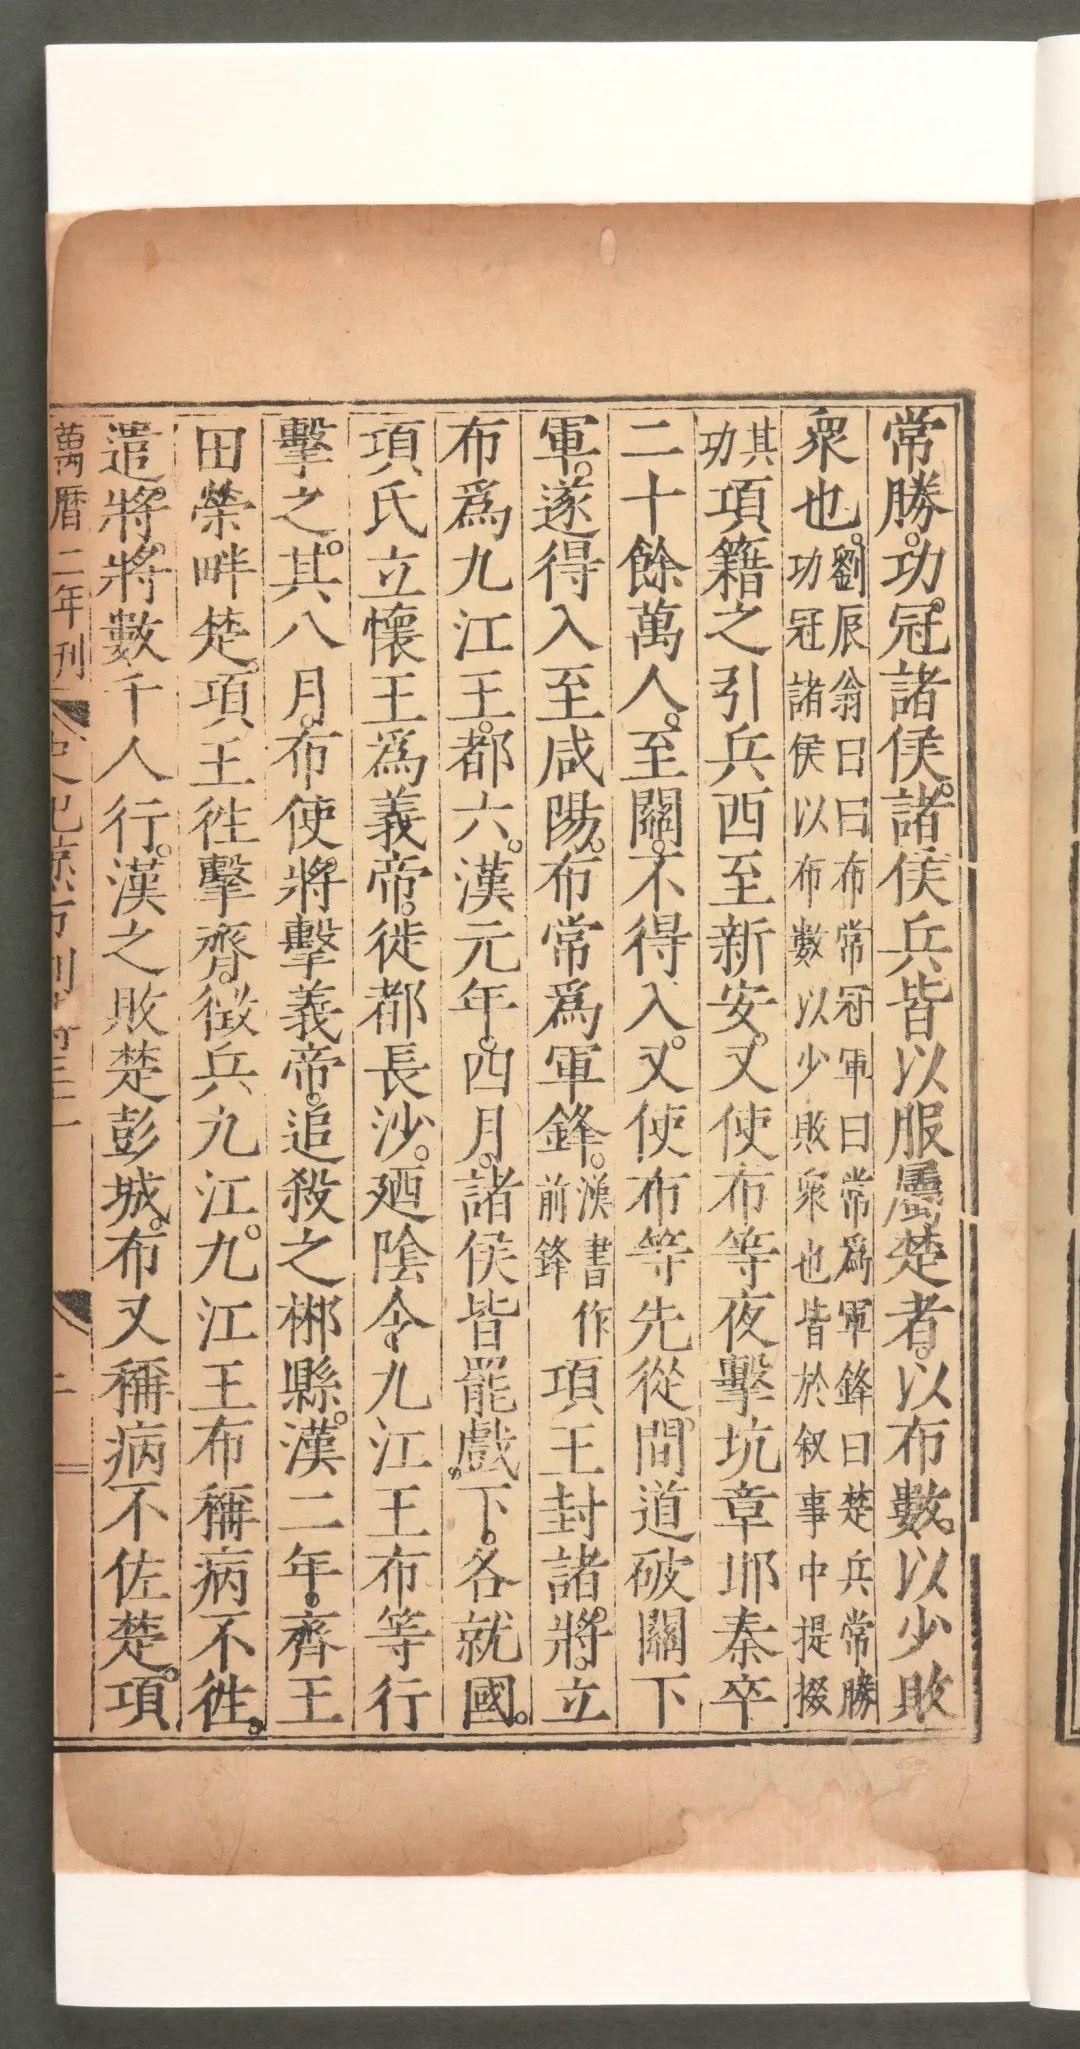 常勝功冠諸侯諸侯兵皆以服屬楚者以布數以少敗
衆也劉辰翁曰曰布常冠軍曰常爲軍鋒曰楚兵常勝功冠諸侯以布數以少敗衆也皆於叙事中提掇
其功項籍之引兵西至新安又使布等夜擊坑章邯秦卒
二十餘萬人至關不得入又使布等先從間道破關下
軍遂得入至咸陽布常爲軍鋒漢書作前鋒項王封諸將立
布爲九江王都六漢元年四月諸侯皆罷戲下各就國
項氏立懷王爲義帝徙都長沙廼陰令九江王布等行
擊之其八月布使將擊義帝追殺之郴縣漢二年齊王
田榮畔楚項王徃擊齊徵兵九江九江王布稱病不徃
遣將將數千人行漢之敗楚彭城布又稱病不佐楚項
萬曆二年刊